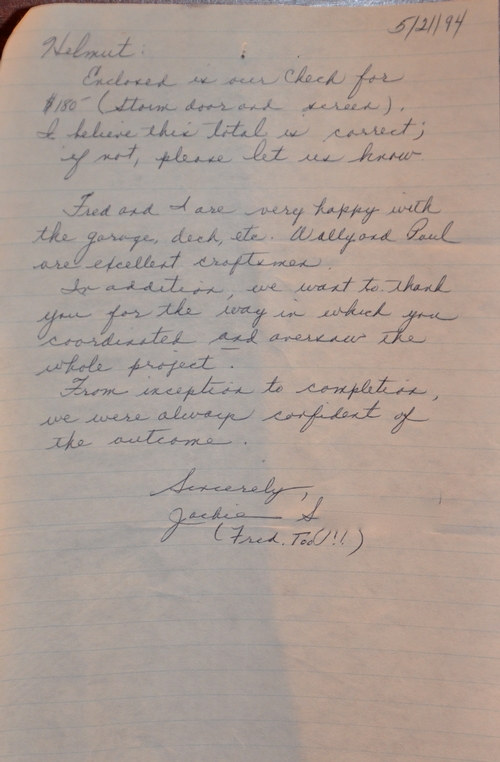 5/21/94
Helmut:
Enclosed is our check for
$180- (storm door and screen).
I believe this total is correct;
if not, please let us know
Fred and I are very happy with
the garage, deck, etc. Wally and Paul
are excellent craftsmen.
In addition, we want to thank
you for the way in which you
coordinated and oversaw the
whole project.
From inception to completion,
we were always confident of
the outcome.
Sincerely,
Jackie S
(Fred. Too!!!)